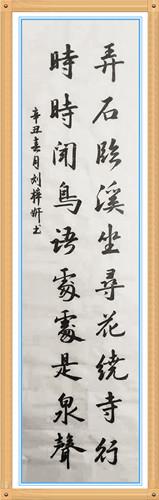 弄石臨溪坐尋花繞寺行
時時聞鳥語處處是泉聲
辛丑春月刘